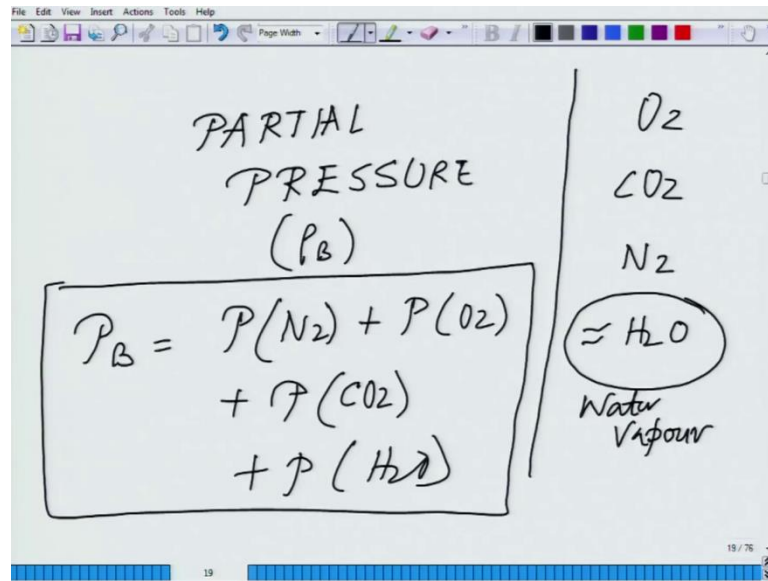 File Edit View Insert Actions Tools Help
Page Width
B I
PARTIAL
PRESSURE
(PB)
PB = P(N2) + P(O2)
+ P(CO2)
+ P(H2O)
O2
CO2
N2
≈ H2O
Water
Vapour
19 / 76
19